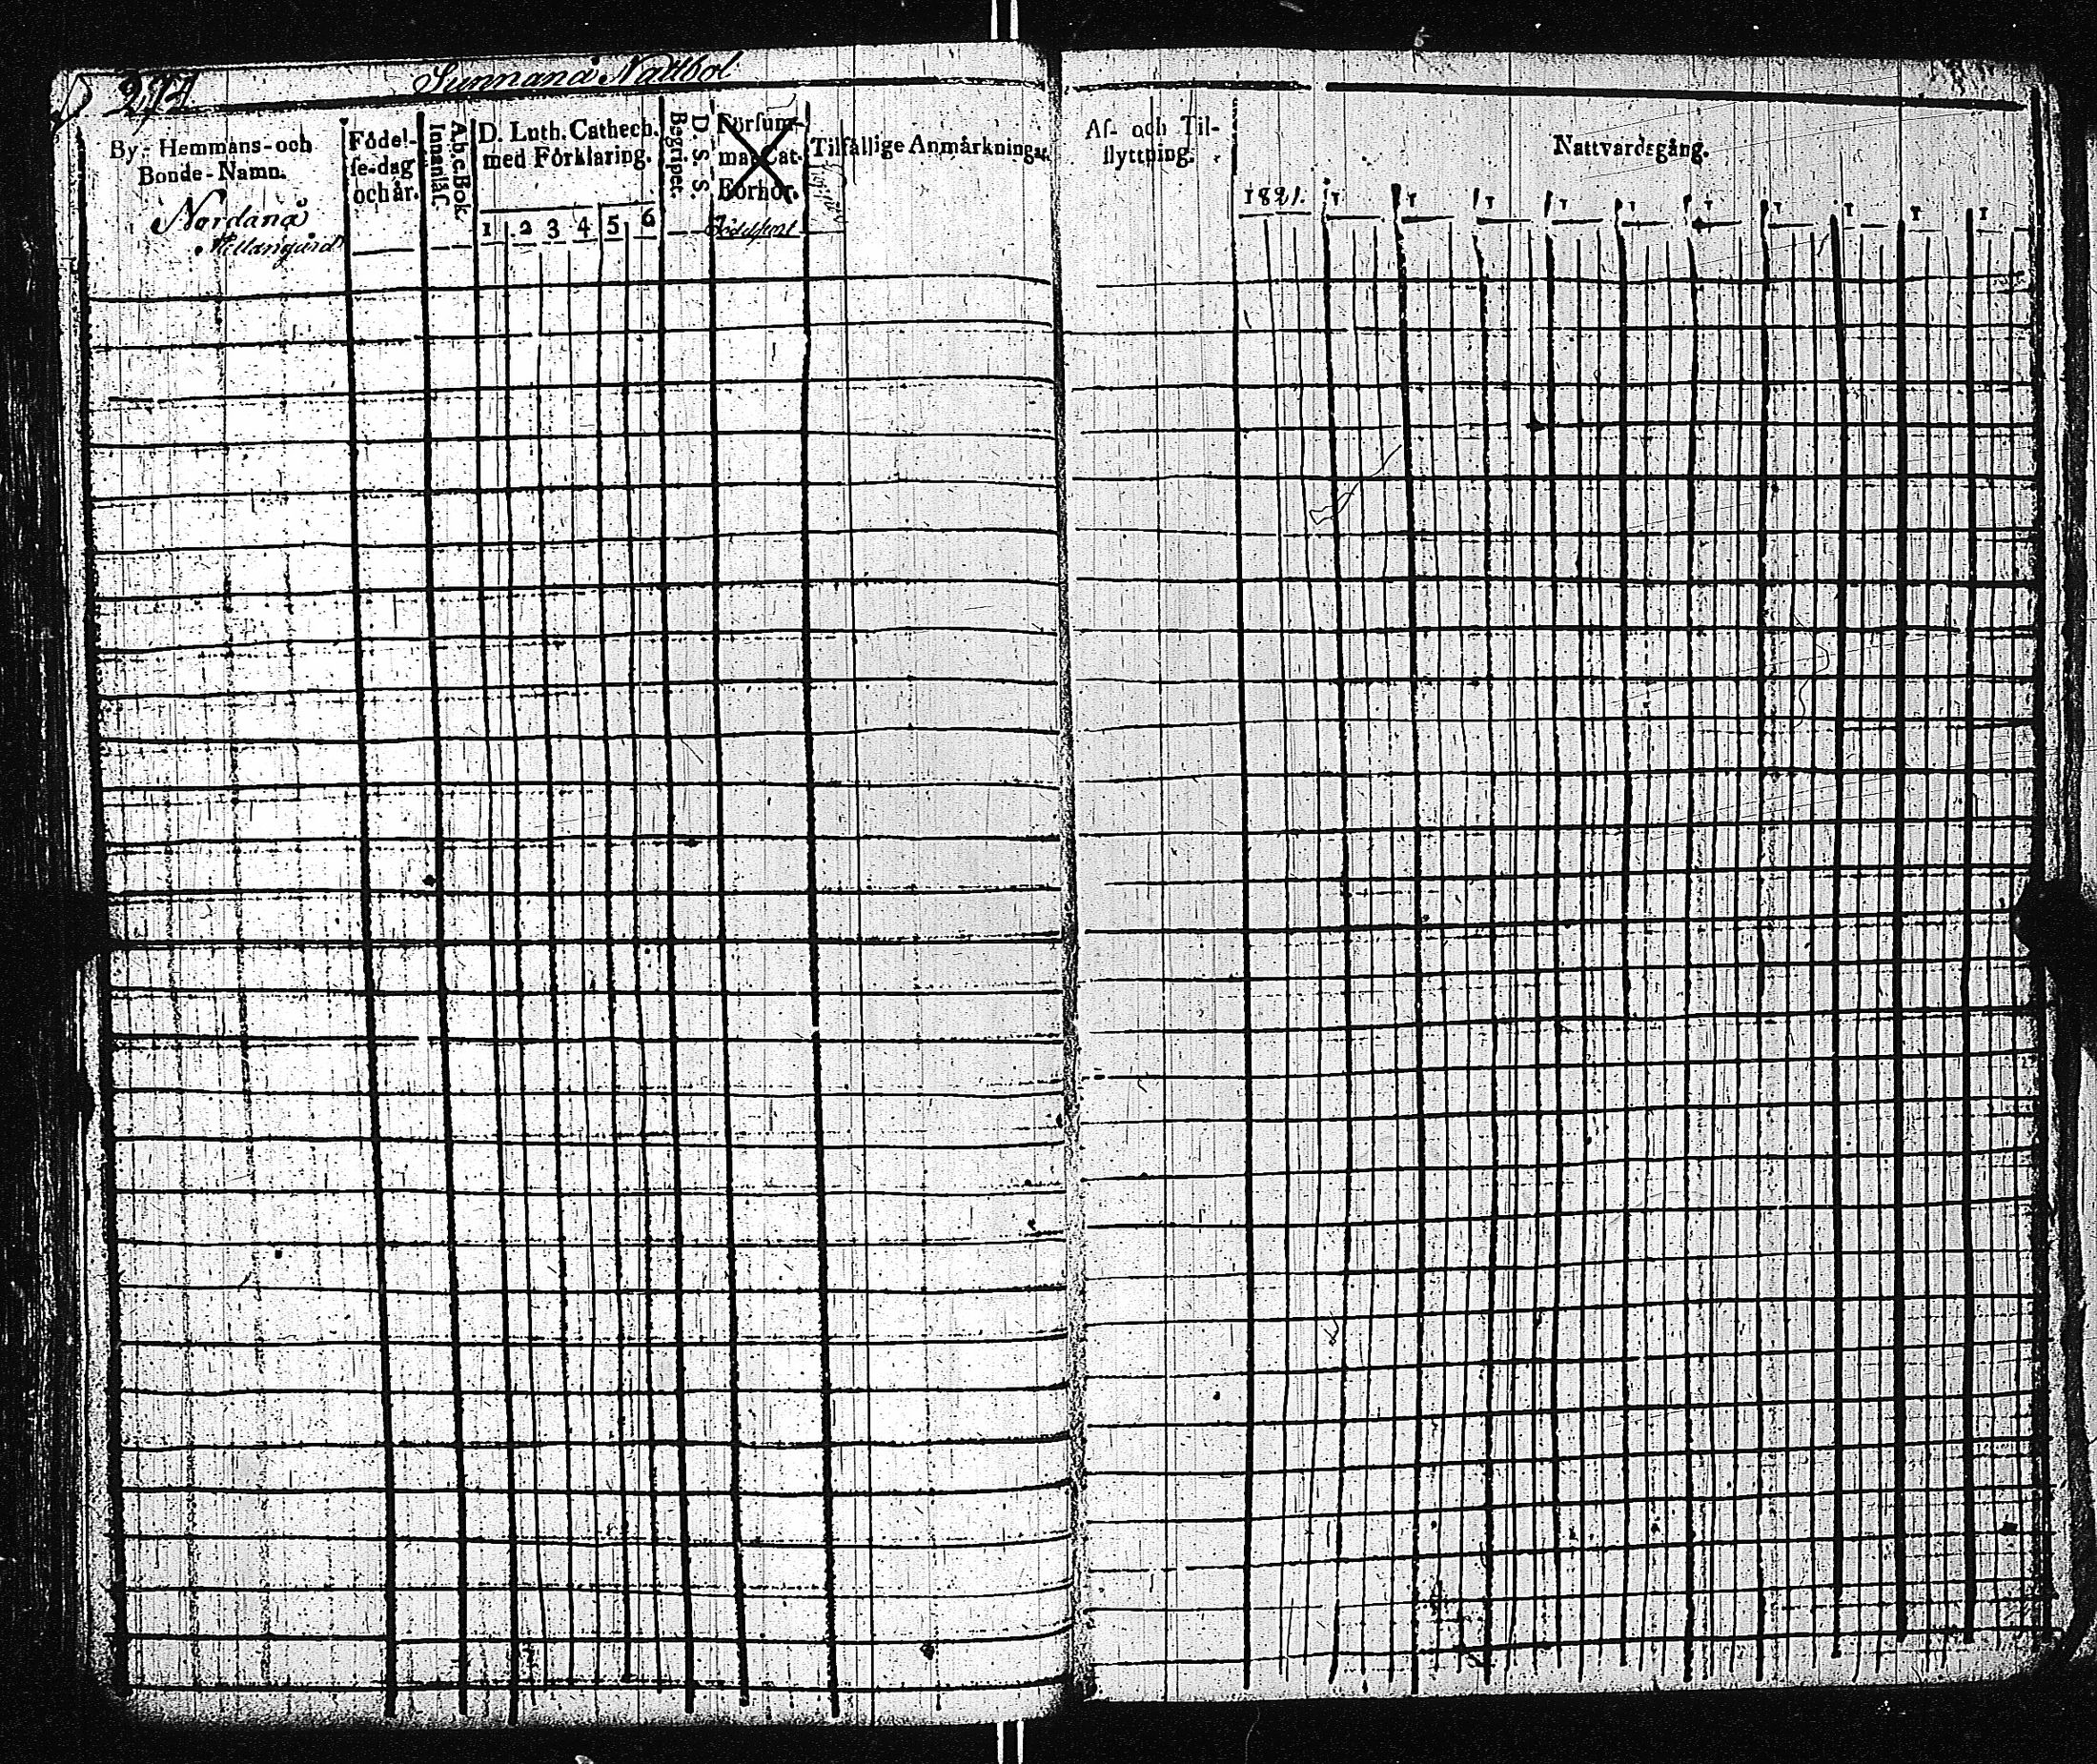 271
Sunnanå Nattbol
By- Hemmans- och
Bonde-Namn.
Nordanå
Mellangård
Födel-
se-dag
och år.
A,b,c,Bok.
Innanläs.
D. Luth. Cathech.
med Förklaring.
1 2 3 4 5 6
D. S. S.
Begripet.
Försum-
ma Cat.
Förhör.
Tilfällige Anmärkningar.
Af- och Til-
flyttning.
Nattvardsgång.
1821.